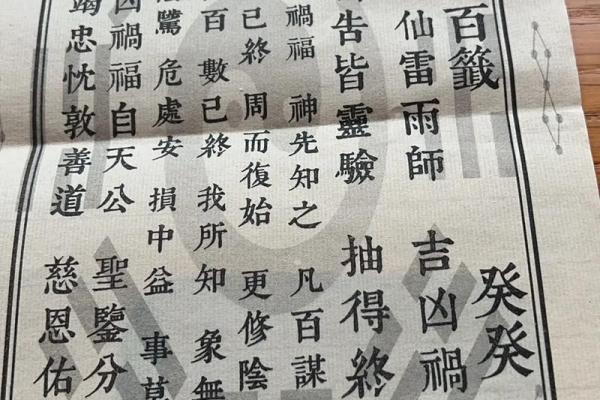 百籤 癸癸
仙雷雨師 吉凶禍
告皆靈驗 抽得終
禍福 神先知之 凡百謀
已終 周而復始 更修陰
百數已終 我所知 象無
驚危處安 損中益 事莫
凶禍福自天公 聖鑒分
竭忠忱敦善道 慈恩佑